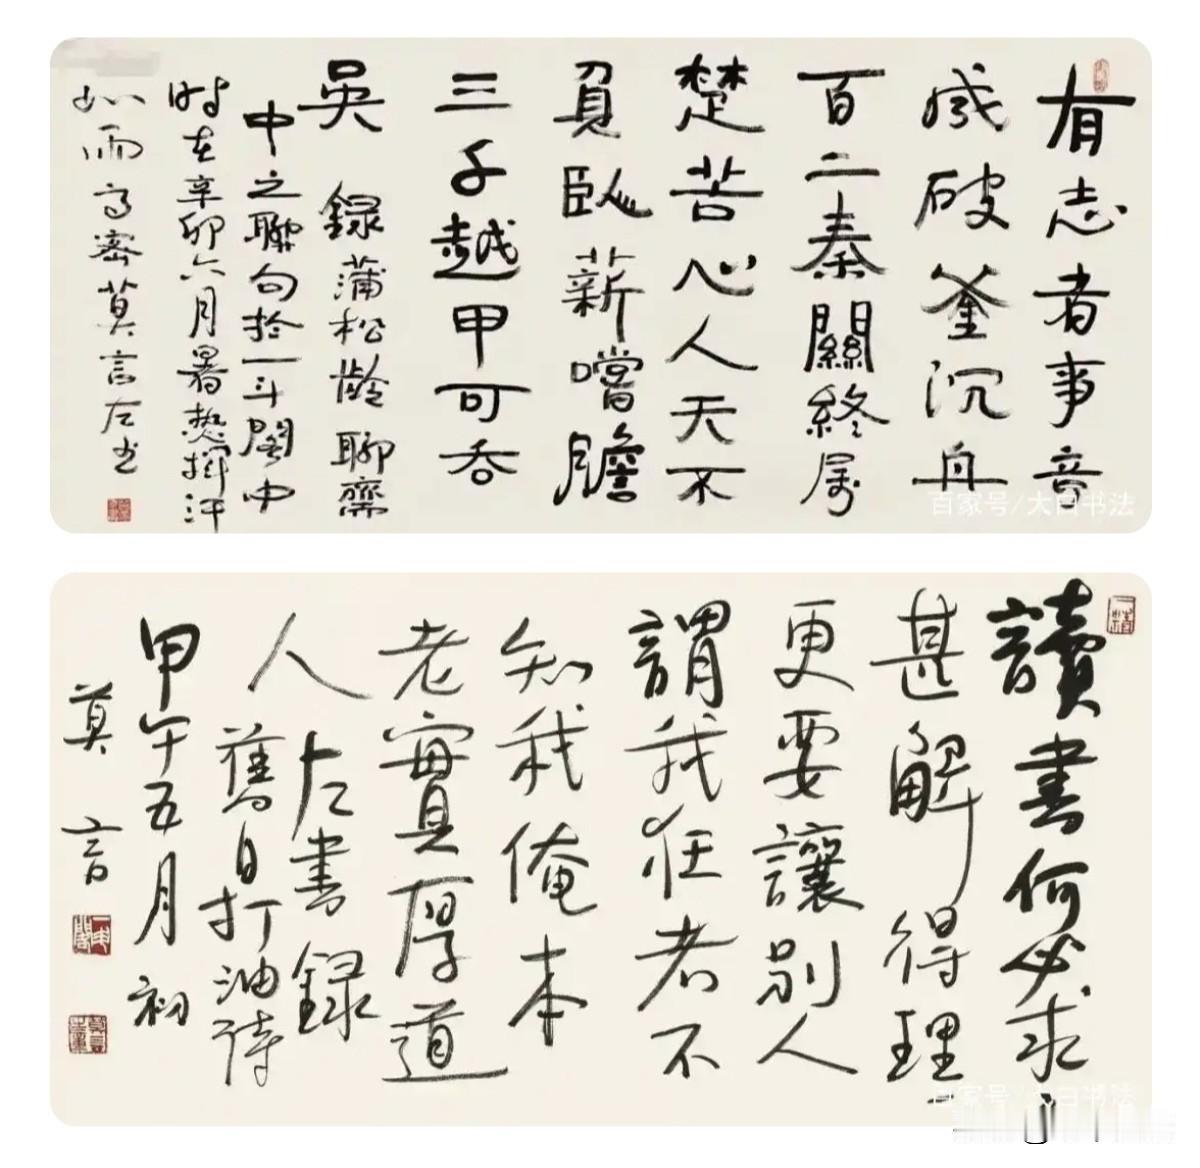 有志者事音
成破釜沉舟
百二秦關終属
楚苦心人天不
負臥薪嚐膽
三千越甲可吞
吳 錄蒲松齡聊齋
中之聯句於一斗閣中
時在辛卯六月暑熱揮汗
如雨高密莫言左书
百家号/大白书法
讀書何必求
甚解得理
更要讓别人
謂我狂者不
知我俺本
老實厚道
人 左書錄
舊自打油詩
甲午五月初
莫言
百家号/大白书法